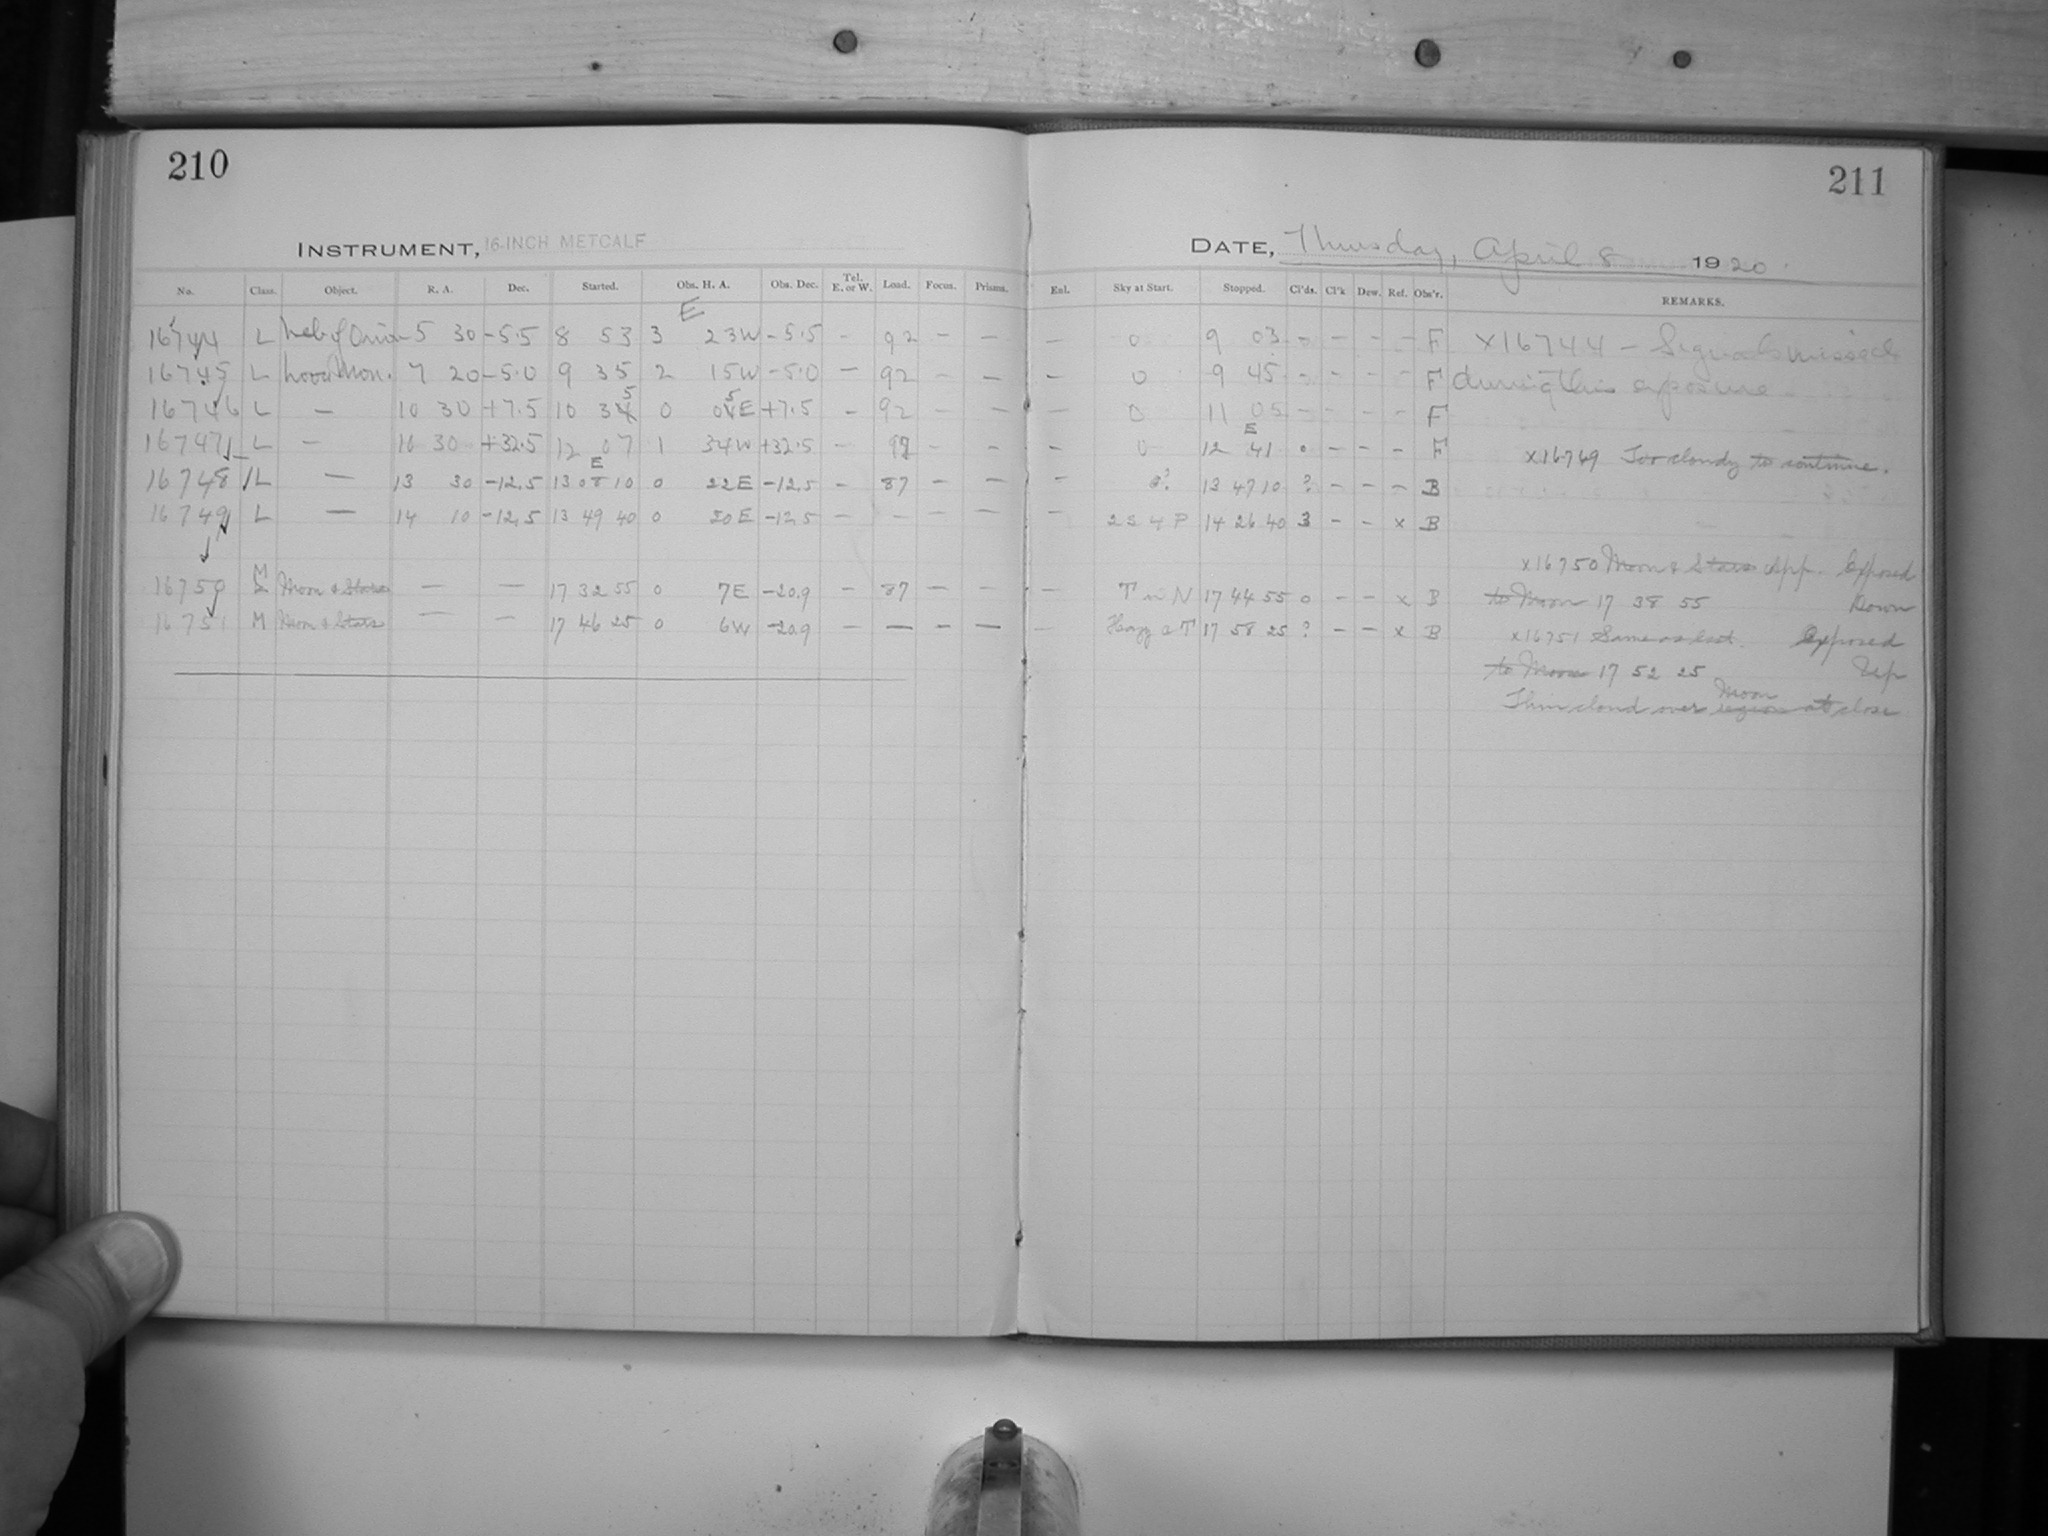 210
211
INSTRUMENT, 16-INCH METCALF
DATE, Thursday, April 8 1920.
No. Class. Object. R. A. Dec. Started. Obs. H. A. Obs. Dec. Tel. E. or W. Load. Focus. Prisms. Enl. Sky at Start. Stopped. Cl'ds. Cl'k Dew. Ref. Obs'r. REMARKS.
E
16744 L Neb of Orion 5 30 -5.5 8 53 3 23W -5.5 - 92 - - - 0 9 03 - - - - F x16744 - Signals missed
16745 L Mon. 7 20 -5.0 9 35 2 15W -5.0 - 92 - - - 0 9 45 - - - - F during this exposure
16746 L - 10 30 +7.5 10 35 0 05E +7.5 - 92 - - - 0 11 05 - - - - F
16747 L - 16 30 +32.5 12 07 1 34W +32.5 - 92 - - - 0 12 41 0 - - - F x16749 Too cloudy to continue.
16748 L - 13 30 -12.5 13 08 10 0 22E -12.5 - 87 - - - 0? 13 47 10 ? - - - B
16749 L - 14 10 -12.5 13 49 40 0 20E -12.5 - - - - - 2 S 4 P 14 26 40 3 - - x B
16750 M Moon & Stars - - 17 32 55 0 7E -20.9 - 87 - - - T in N 17 44 55 0 - - x B x16750 Moon & Stars App. Exposed
to Moon 17 38 55 Down
16751 M Moon & Stars - - 17 46 25 0 6W -20.9 - - - - - Hazy T 17 58 25 ? - - x B x16751 Same as last. Exposed
to Moon 17 52 25 Up
Thin cloud over Moon region at close